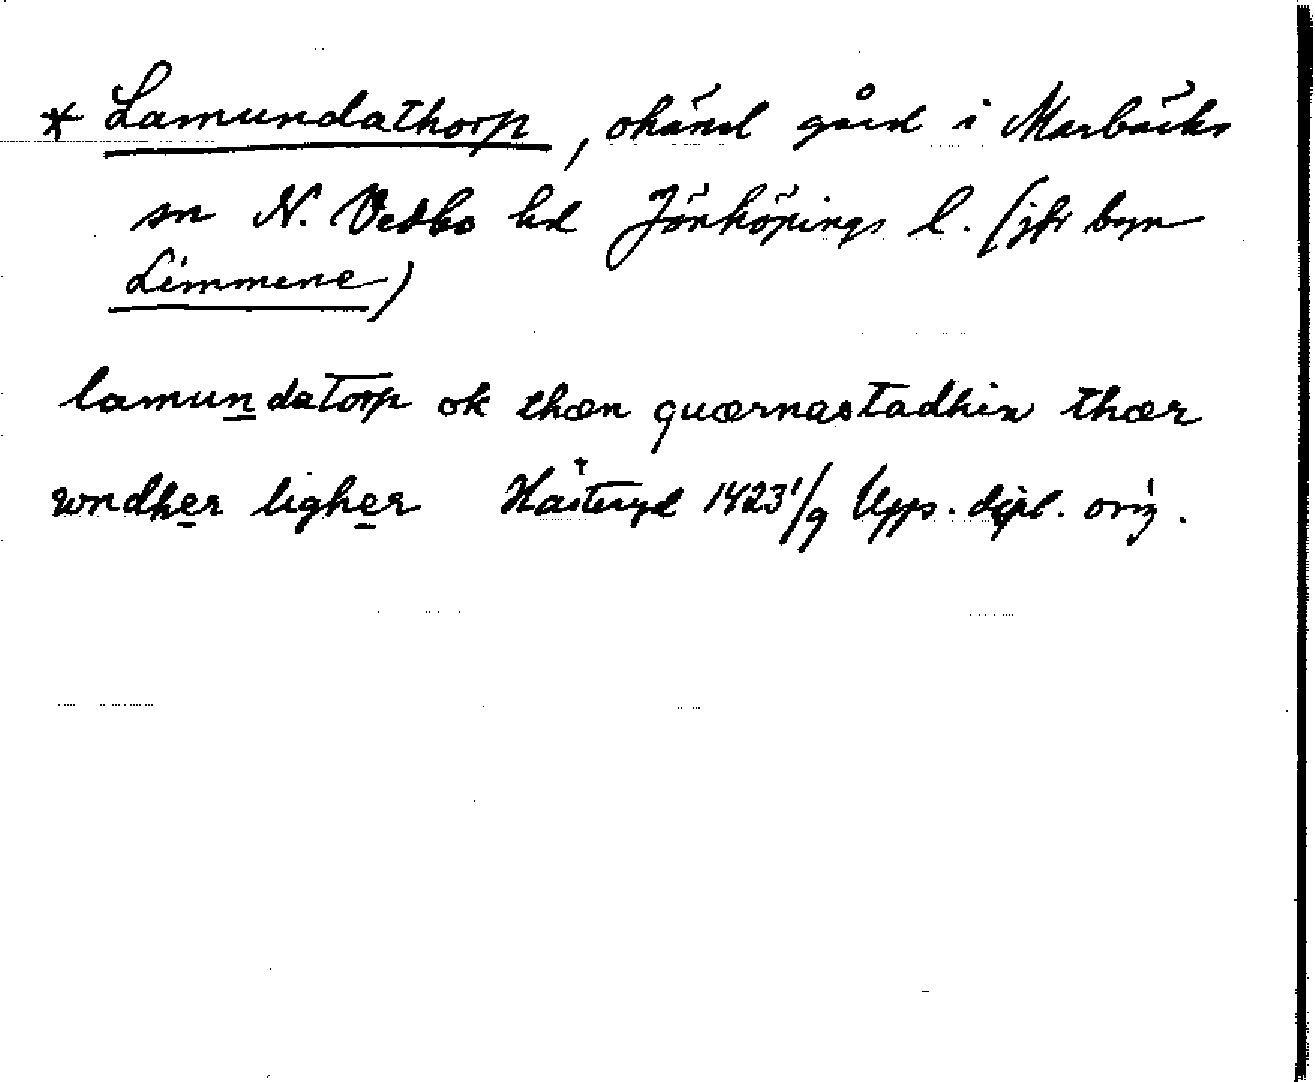 * Lamundathorp, okänd gård i Marbäcks
sn N. Vedbo hd Jönköpings l. (jfr byn
Limmene)
lamundatorp ok thæn quærnastadhin thær
wndher ligher Hästeryd 1423 1/9 Upps. dipl. orig.